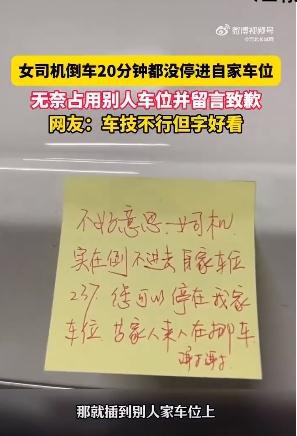 微博视频号
女司机倒车20分钟都没停进自家车位
无奈占用别人车位并留言致歉
网友：车技不行但字好看
不好意思.女司机
实在倒不进去自家车位
237. 您可以停在我家
车位. 等家人来人在挪车
谢谢
那就插到别人家车位上